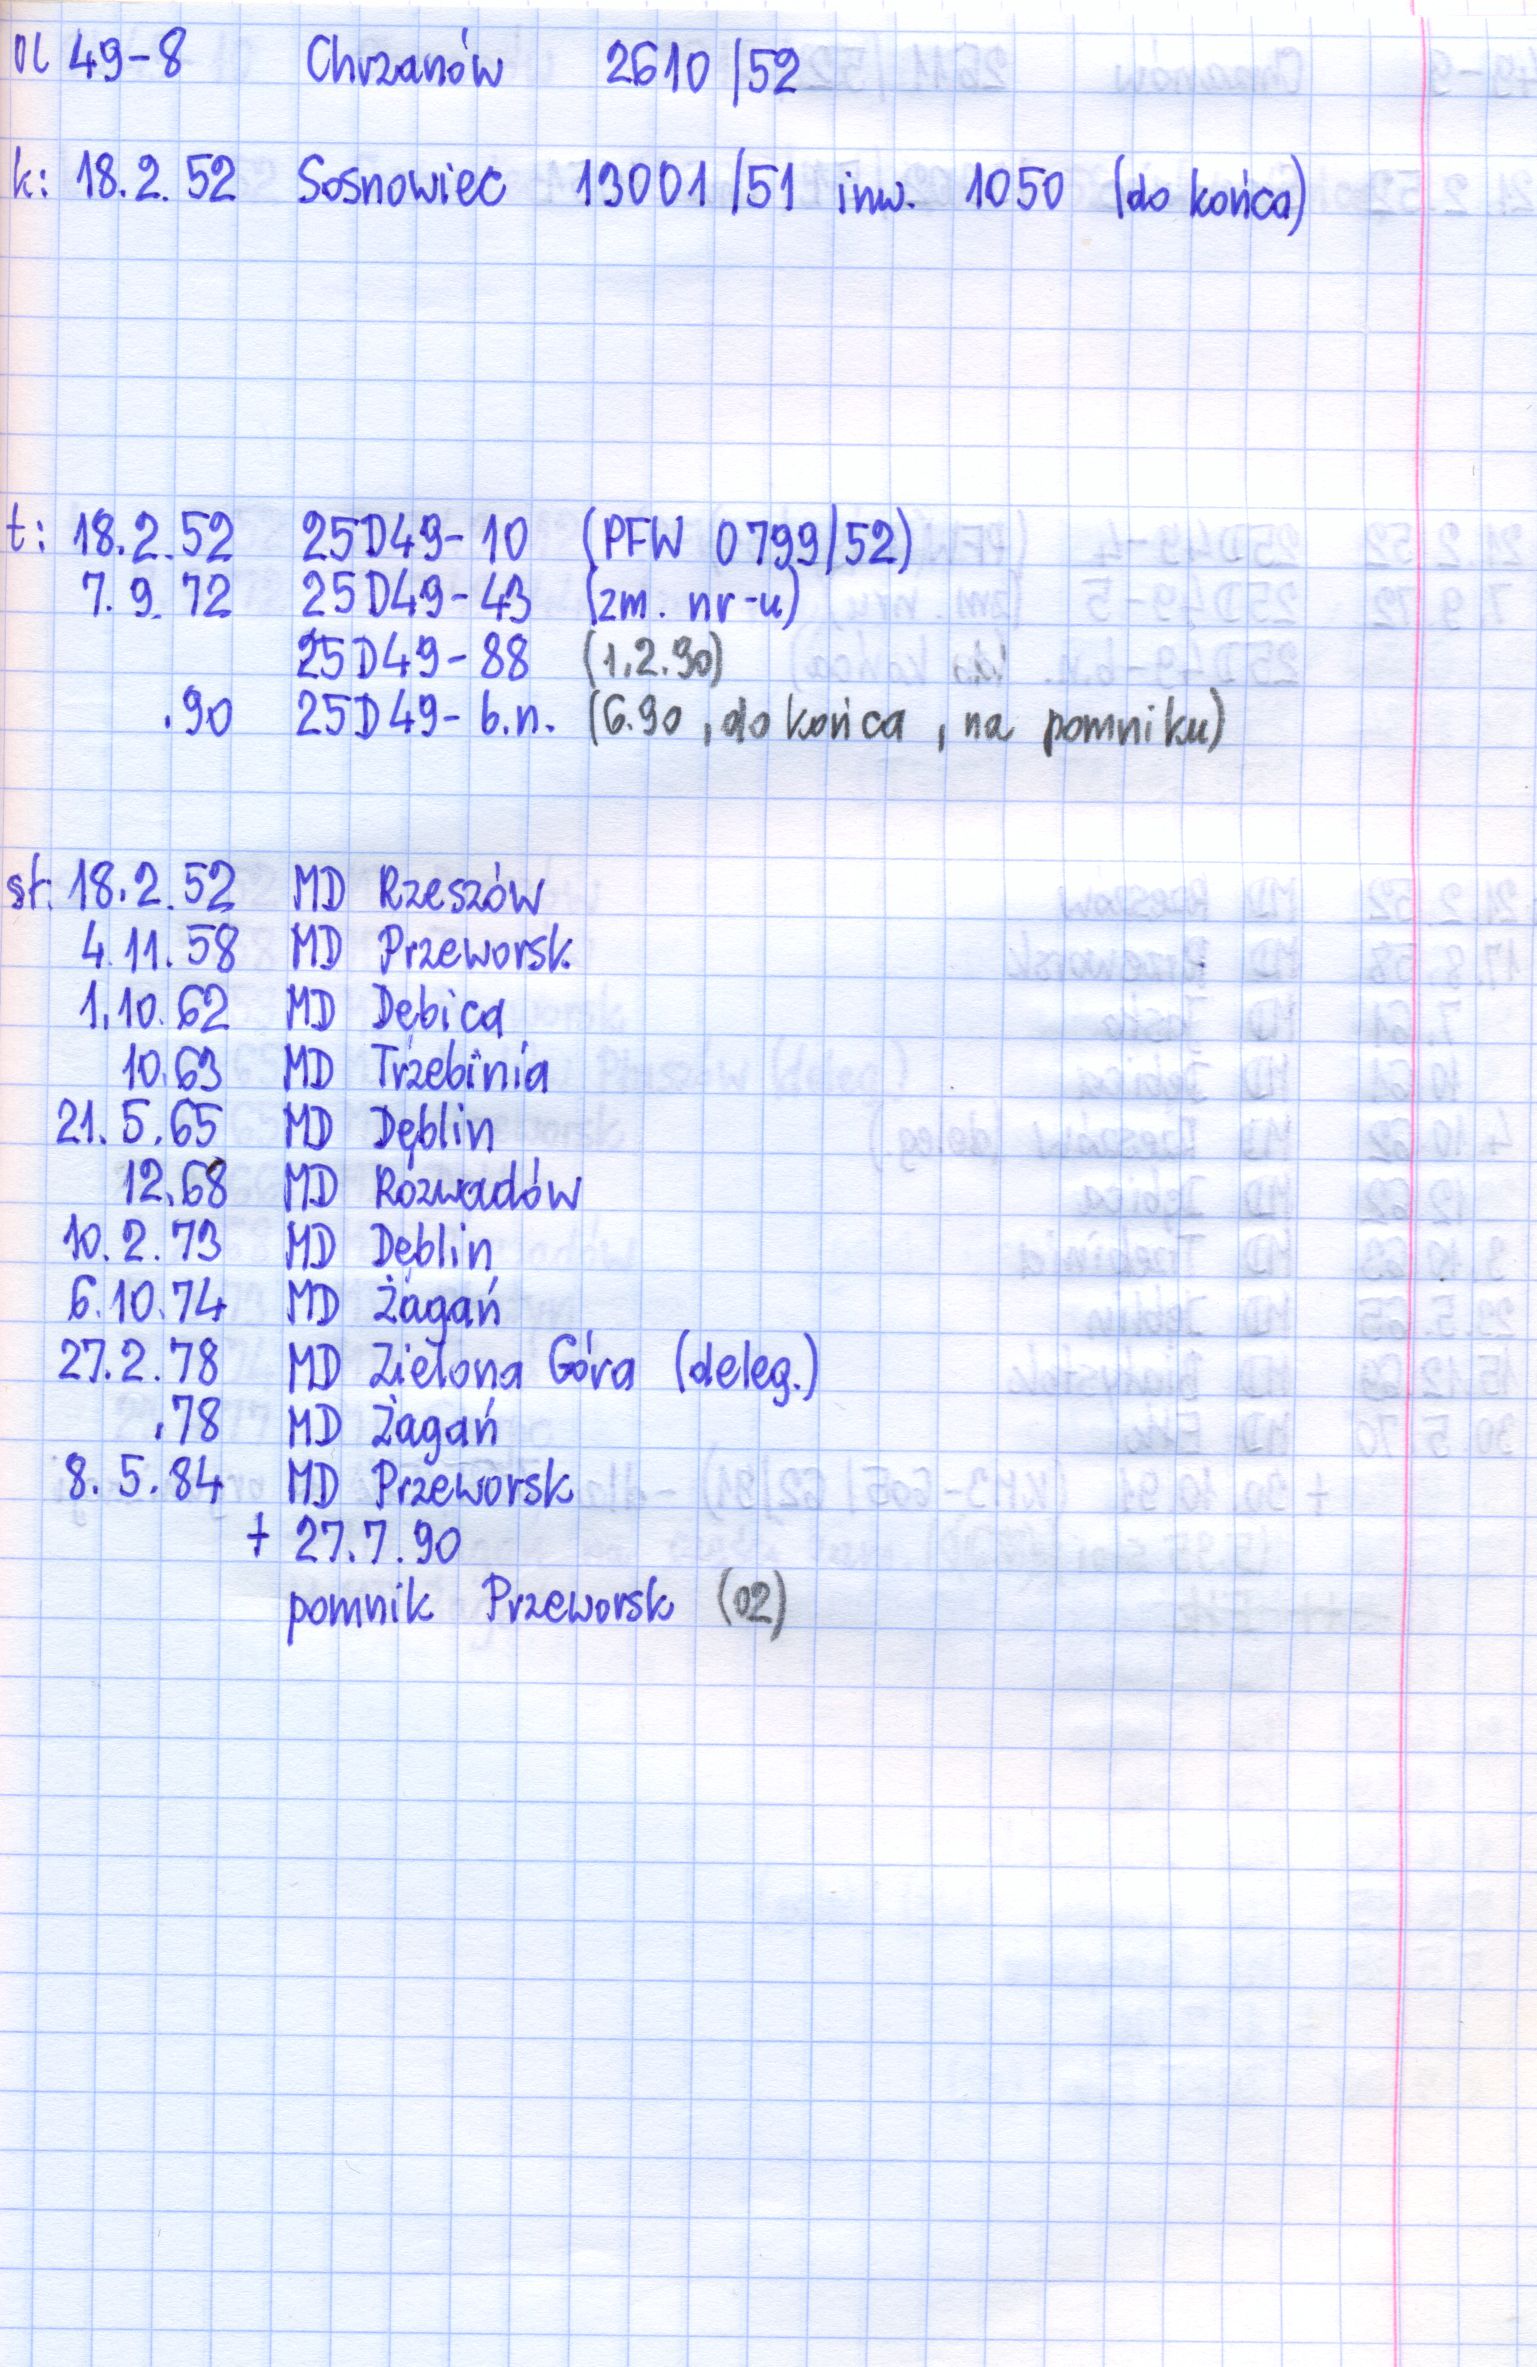 Ol 49-8 Chrzanów 2610/52
k: 18.2.52 Sosnowiec 13001/51 inw. 1050 (do końca)
t: 18.2.52 25D49-10 (PFW 0799/52)
7.9.72 25D49-43 (zm. nr-u)
25D49-88 (1.2.90)
.90 25D49-b.n. (6.90, do końca, na pomniku)
st: 18.2.52 MD Rzeszów
4.11.58 MD Przeworsk
1.10.62 MD Dębica
10.63 MD Trzebinia
21.5.65 MD Dęblin
12.68 MD Rozwadów
10.2.73 MD Dęblin
6.10.74 MD Żagań
27.2.78 MD Zielona Góra (deleg.)
.78 MD Żagań
8.5.84 MD Przeworsk
+ 27.7.90
pomnik Przeworsk (02)